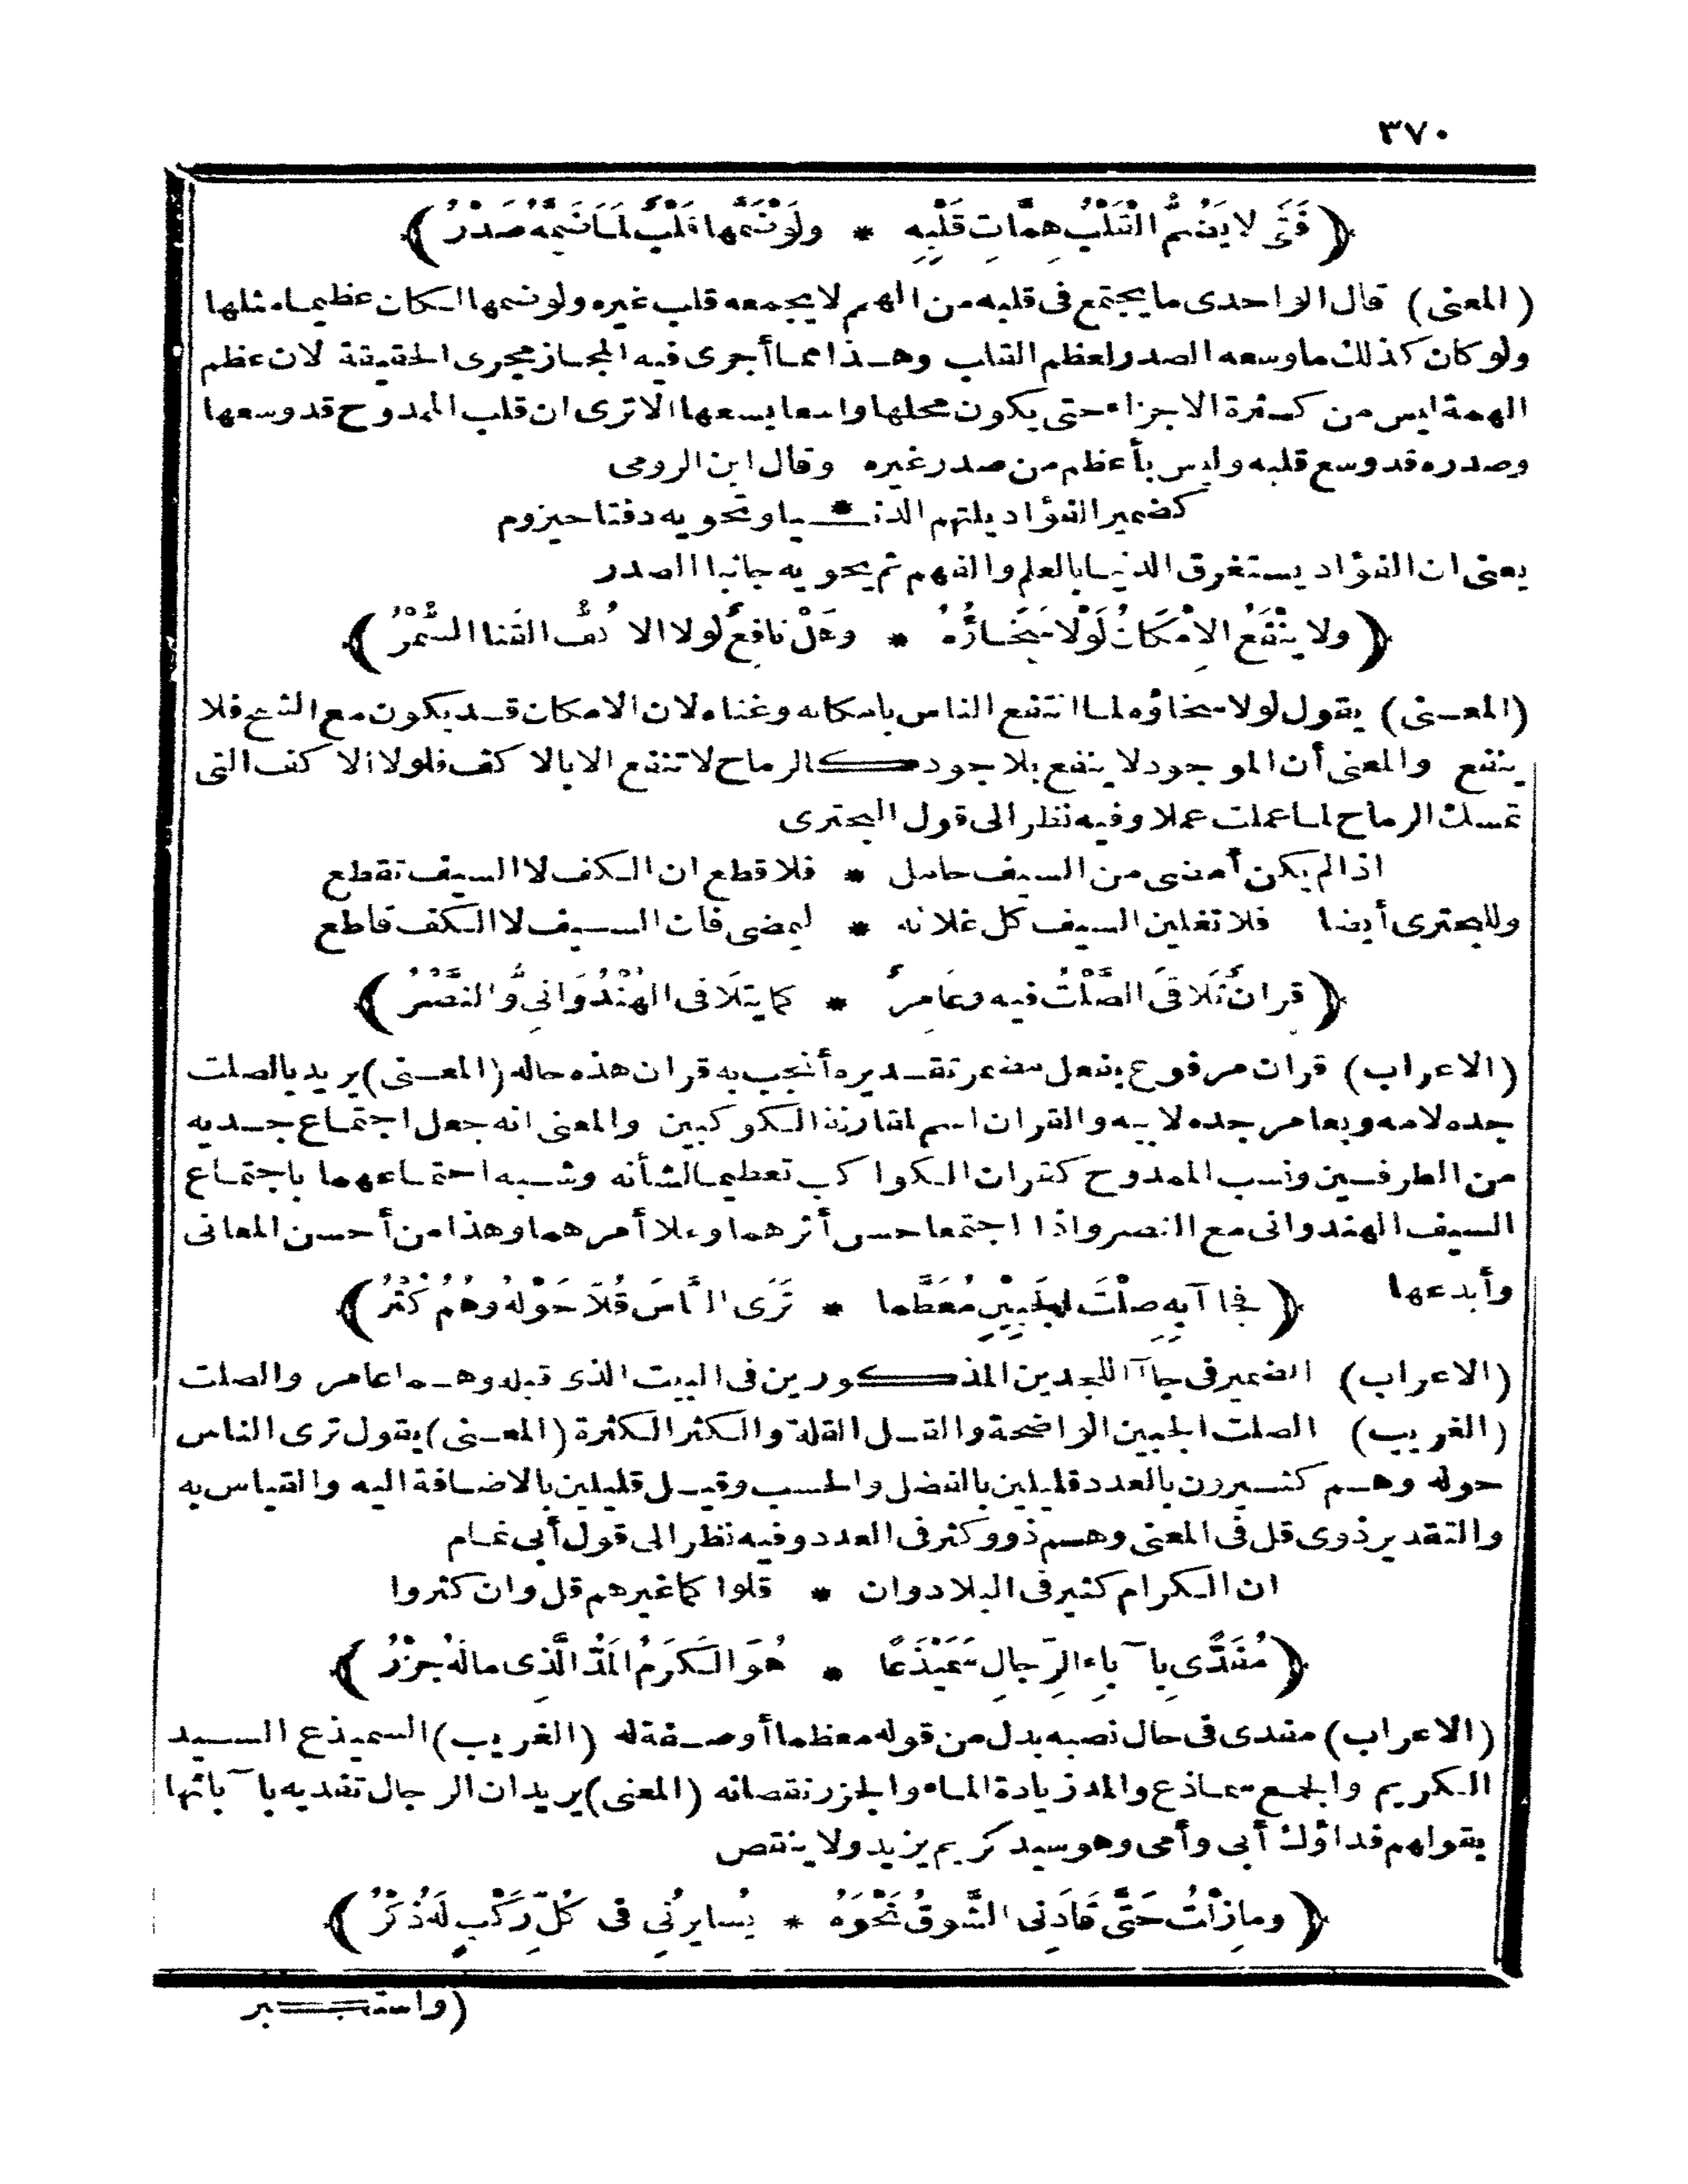 ٣٧٠
﴿ فَتًى لا يَضُمُّ القَلْبُ هِمَّاتِ قَلْبِهِ * ولَوْ ضَمَّها قَلْبٌ لَمَا ضَمَّهُ صَدْرُ ﴾
(المعنى) قال الواحدى ما يجتمع فى قلبه من الهم لا يجمعه قلب غيره ولو ضمها لكان عظيما مثلها
ولو كان كذلك ما وسعه الصدر لعظم القلب وهذا مما أجرى فيه المجاز مجرى الحقيقة لان عظم
الهمة ليس من كثرة الاجزاء حتى يكون محلها واسعا يسعها الا ترى ان قلب الممدوح قد وسعها
وصدره قد وسع قلبه وليس بأعظم من صدر غيره وقال ابن الرومى
كضمير الفؤاد يلتهم الدنـ * ـيا وتحويه دفتا حيزوم
يعنى ان الفؤاد يستغرق الدنيا بالعلم والفهم ثم يحويه جانبا الصدر
﴿ ولا يَنْفَعُ الاِمْكَانُ لَوْلا سَخَاؤُهُ * وهَلْ نافِعٌ لولا الاَ كُفُّ القَنا السُّمْرُ ﴾
(المعنى) يقول لولا سخاؤه لما انتفع الناس بامكانه وغناه لان الامكان قد يكون مع الشح فلا
ينفع والمعنى أن الموجود لا ينفع بلا جود كالرماح لا تنفع الا بالا كف فلولا الا كف التى
تمسك الرماح لما عملت عملا وفيه نظر الى قول البحترى
اذا لم يكن أمضى من السيف حامل * فلا قطع ان الكف لا السيف تقطع
وللبحترى أيضا فلا تغلين السيف كل غلائه * ليمضى فان السيف لا الكف قاطع
﴿ قِرانٌ تَلاقَى الصَّلْتُ فيه وعَامِرٌ * كما يتلاقى الهِنْدُوَانِىُّ والنَّصْرُ ﴾
(الاعراب) قران مرفوع بفعل مضمر تقديره أنجب به قران هذه حاله (المعنى) يريد بالصلت
جده لامه وبعامر جده لابيه والقران اسم لمقارنة الكوكبين والمعنى انه جعل اجتماع جديه
من الطرفين ونسب الممدوح كقران الكواكب تعظيما لشأنه وشبه اجتماعهما باجتماع
السيف الهندوانى مع النصر واذا اجتمعا حسن أثرهما وعلا أمرهما وهذا من أحسن المعانى
وأبدعها ﴿ فجا آ بِهِ صلْتَ الجَبِيْنِ مُعَظَّما * تَرَى النَّاسَ قُلّاً حَوْلهُ وهُمُ كُثْرُ ﴾
(الاعراب) الضمير فى جا آ للجدين المذكورين فى البيت الذى قبله وهما عامر والصلت
(الغريب) الصلت الجبين الواضحة والقل القلة والكثر الكثرة (المعنى) يقول ترى الناس
حوله وهم كثيرون بالعدد قليلين بالفضل والحسب وقيل قليلين بالاضافة اليه والقياس به
والتقدير ذوى قل فى المعنى وهم ذوو كثر فى العدد وفيه نظر الى قول أبى تمام
ان الكرام كثير فى البلاد وان * قلوا كما غيرهم قل وان كثروا
﴿ مُفَدًّى بِا ٓباءِ الرِّجالِ سَمَيْذَعًا * هُوَ الكَرَمُ المَدُّ الَّذِى مالَهُ جزْرُ ﴾
(الاعراب) مفدى فى حال نصبه بدل من قوله معظما أو صفة له (الغريب) السميذع السيد
الكريم والجمع سماذع والمد زيادة الماء والجزر نقصانه (المعنى) يريد ان الرجال تفديه با ٓبائها
بقولهم فداؤك أبى وأمى وهو سيد كريم يزيد ولا ينقص
﴿ ومازِلْتُ حَتَّى قَادَنِى الشَّوقُ نَحْوَهُ * يُسايرُنِى فى كُلِّ رَكْبٍ لَهُ ذِكْرُ ﴾
(واستكبر